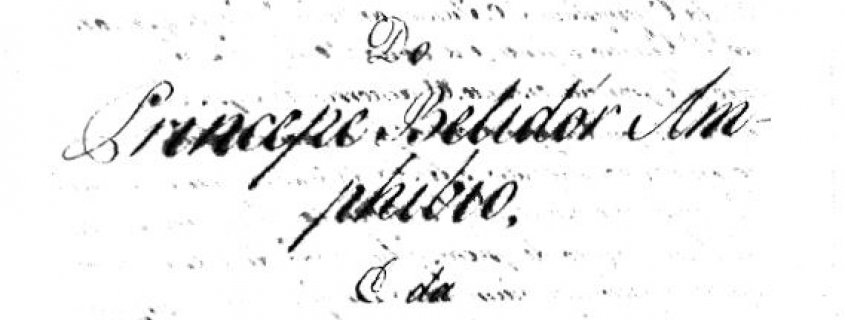 Do
Principe Belidór Am-
phibio,
E da